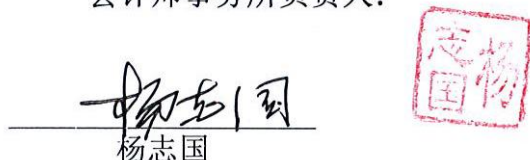 会计师事务所负责人：
杨志国
杨志国
杨志国